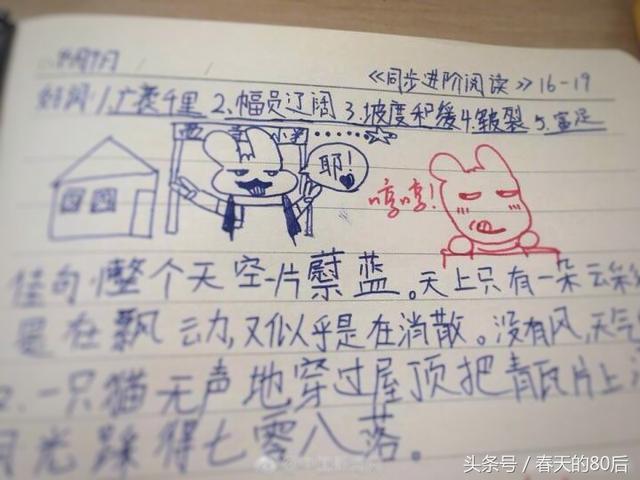 《同步进阶阅读》16-19
好词:1.广袤千里 2.幅员辽阔 3.坡度和缓 4.皲裂 5.富足
耶!
哼哼!
佳句:1.整个天空一片蔚蓝。天上只有一朵云彩
是在飘动,又似乎是在消散。没有风,天气
2.一只猫无声地穿过屋顶把青瓦片上
月光踩得七零八落。
头条号 / 春天的80后